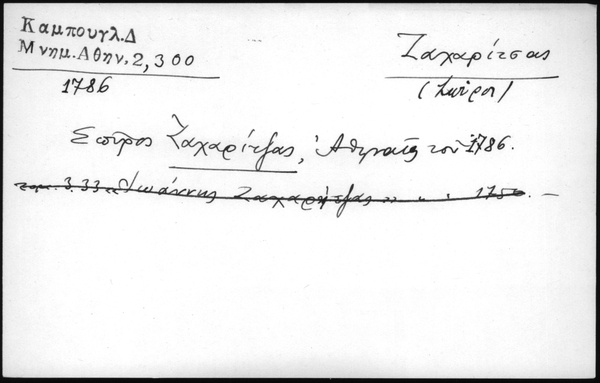 Καμπουγλ.Δ
Μνημ.Αθην.2,300
1786
Ζαχαρίτσας
(Σπύρος)
Σπύρος Ζαχαρίτζας, Ἀθηναῖος τοῦ 1786.
3.33 Ἰωάννης Ζαχαρίτζας " " 1756. —